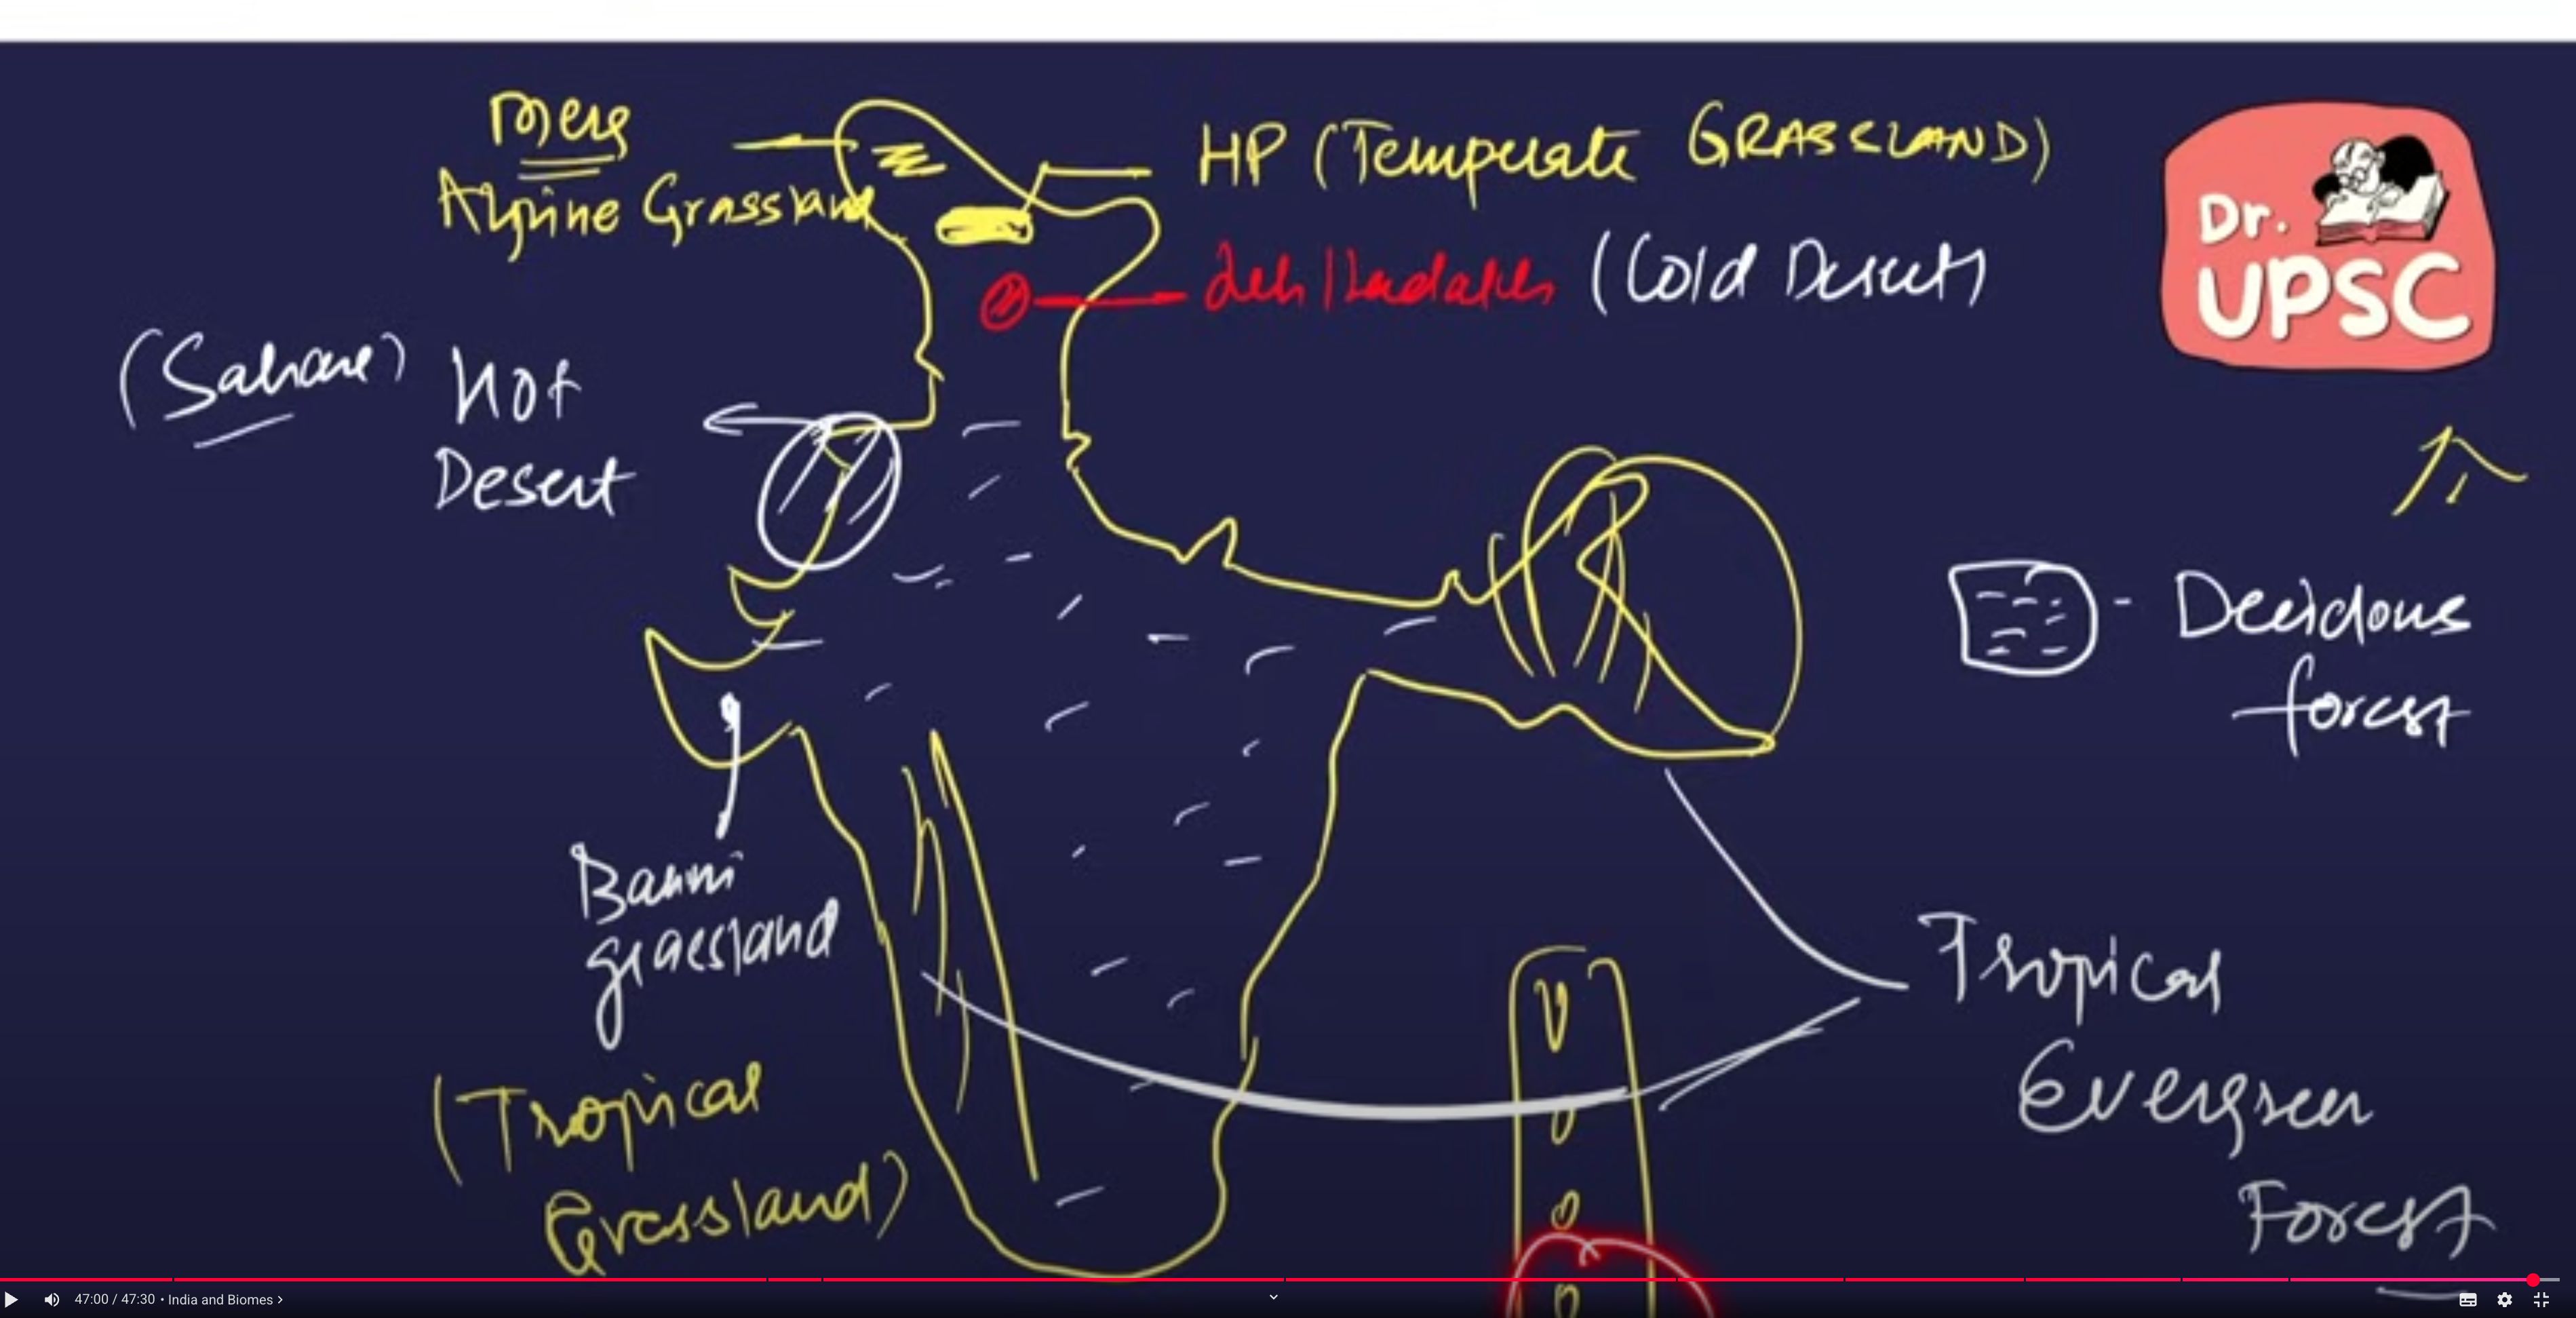 Merg
Alpine Grassland
HP (Temperate GRASSLAND)
Leh/Ladakh (Cold Desert)
(Sahara) Hot
Desert
Dr.
UPSC
- Deciduous
forest
Banni
grassland
(Tropical
Grassland)
Tropical
Evergreen
Forest
47:00 / 47:30 • India and Biomes >